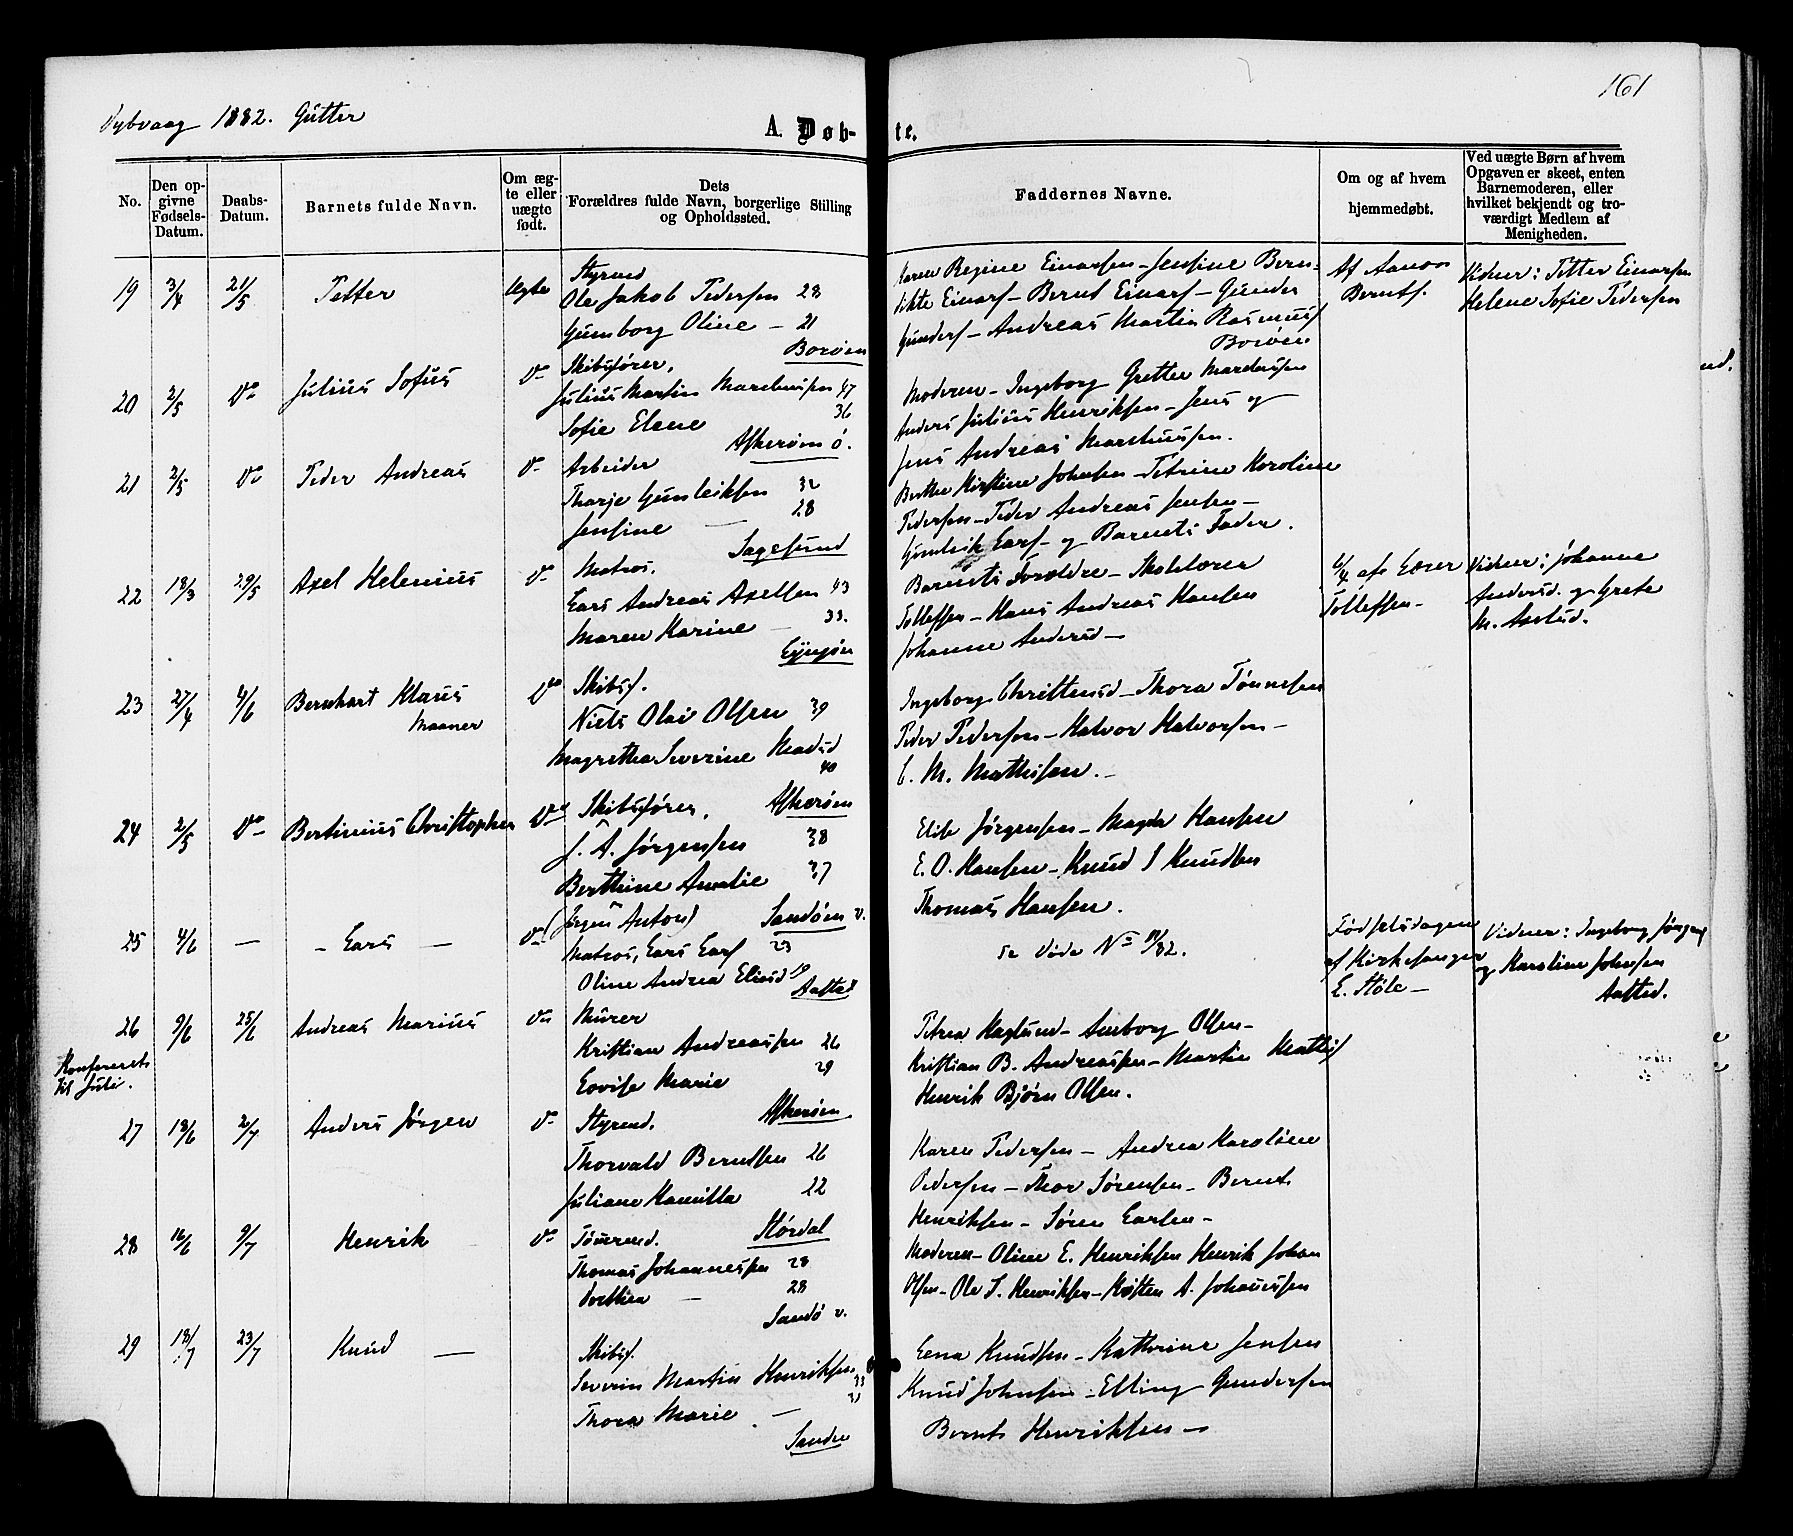 161
Dybvaag 1882. Gutter
A. Døbte.
No.
Den opgivne Fødsels-Datum.
Daabs-Datum.
Barnets fulde Navn.
Om ægte eller uægte født.
Dets Forældres fulde Navn, borgerlige Stilling og Opholdssted.
Faddernes Navne.
Om og af hvem hjemmedøbt.
Ved uægte Børn af hvem Opgaven er skeet, enten Barnemoderen, eller hvilket bekjendt og troværdigt Medlem af Menigheden.
19 3/4 21/5 Petter Ægte Styrmd
Ole Jakob Pedersen 28
Gunborg Oline – 21
Borøen
Karen Regine Einarsen – Jensine Bern-
dikte Einars – Bernt Einars – Gunder
Gunders – Andreas Martin Rasmus
Borøen
Af Aanon
Bernts.
Vidner: Petter Einarsen
Helene Sofie Pedersen
20 2/5 Do Julius Sofus Do Skibsfører,
Julius Martin Marcheusen 47
Sofie Elene 36
Askerøen ø.
Moderen – Ingeborg Gretter
Anders Julius Henriksen – Jens og
Jens Andreas
21 2/5 Do Peder Andreas Do Arbeider
Tharje Gunleiksen 32
Jensine – 28
Sagesund
Berthe Kirstine Johnsen – Petrine Karoline
Pedersen – Peder Andreas Jensen –
Gunleik Lars – og Barnets Fader.
22 18/3 29/5 Axel Helenius Do Matros.
Lars Andreas Axelsen 43
Maren Karine – 33.
Lyngøen
Barnets Forældre – Skolelærer
Tollefsen – Hans Andreas Hansen
Johanne Andersd –
6/4 af Lærer
Tollefsen –
Vidner: Johanne
Andersd. og Grete
M. Axelsd.
23 27/4 4/6 Bernhart Klaus
Maaner
Do Skibsf.
Niels Olai Olsen 39
Magretha Severine Madsd
40
Askerøen
Ingeborg Christensd – Thora Tønnesen
Peder Pedersen – Halvor Halvorsen –
C. M. Mathisen. –
24 2/5 Do Bertinius Christopher Do Skibsfører,
J. A. Jørgensen 38
Berthine Amalie 37
(Jørgen Anton) Sandøen v.
Elise Jørgensen – Magda Hansen
E. O. Hansen – Knud I Knudsen
Thomas Hansen.
25 4/6 – – Lars – Do Matros, Lars Lars 23
Oline Andrea Eliasd 19
Aasted
se Døde No 11/82.
Fødselsdagen
af Kirkesanger
E. Støle –
Vidner: Ingeborg Jørgens
og Karoline Johnsen
Aasted.
26 9/6 25/6 Andreas Marius Do Murer
Kristian Andreassen 26
Lovise Marie 29
Askerøen
Petrea Haglund – Amborg Olsen –
Kristian B. Andreassen – Martin Mathis
Henrik Bjørn Olsen.
Konfereret
til Juli.
27 18/6 2/7 Anders Jørgen Do Styrmd.
Thorvald Berntsen 26
Juliane Kamilla 22
Størdal
Karen Pedersen – Andrea Karoline
Pedersen – Thor Sørensen – Bernt
Henriksen – Søren Larsen –
28 16/6 9/7 Henrik Do Tømrmd.
Thomas Johannessen 28
Dorthea – 28
Sandø v.
Moderen – Oline E. Henriksen Henrik Johan
Olsen – Ole S. Henriksen – Kristen A. Johanessen
29 18/7 23/7 Knud – Skibsf.
Severin Martin Henriksen 33
Thora Marie –
Sanden
Lena Knudsen – Kathrine Jensen
Knud Johnsen – Elling Gundersen
Bernt Henriksen –